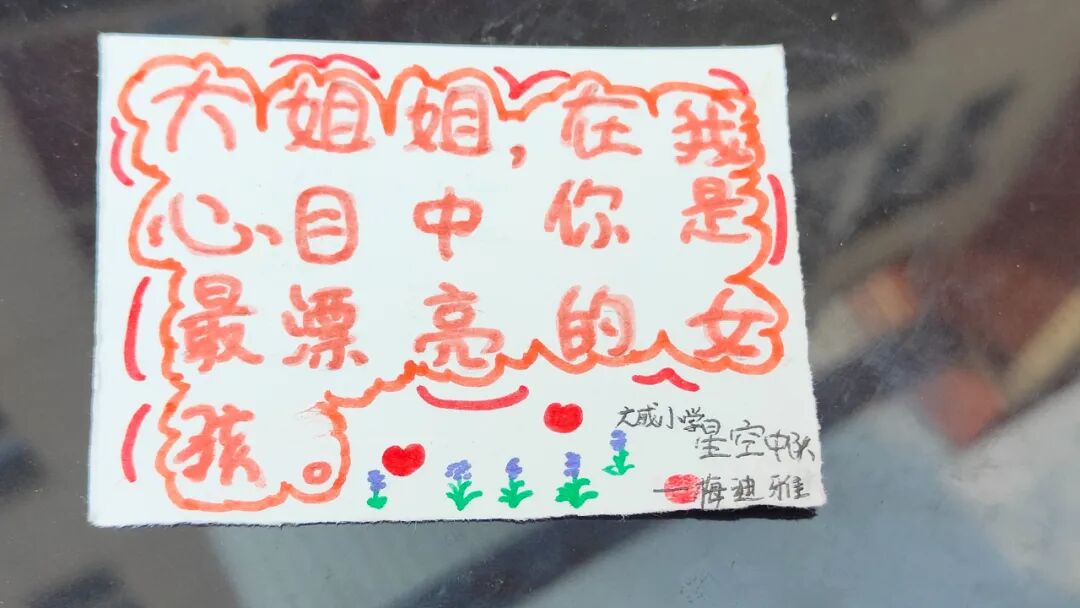 大姐姐，在我
心目中你是
最漂亮的女
孩。
大成小学
星空中队
一梅迪雅